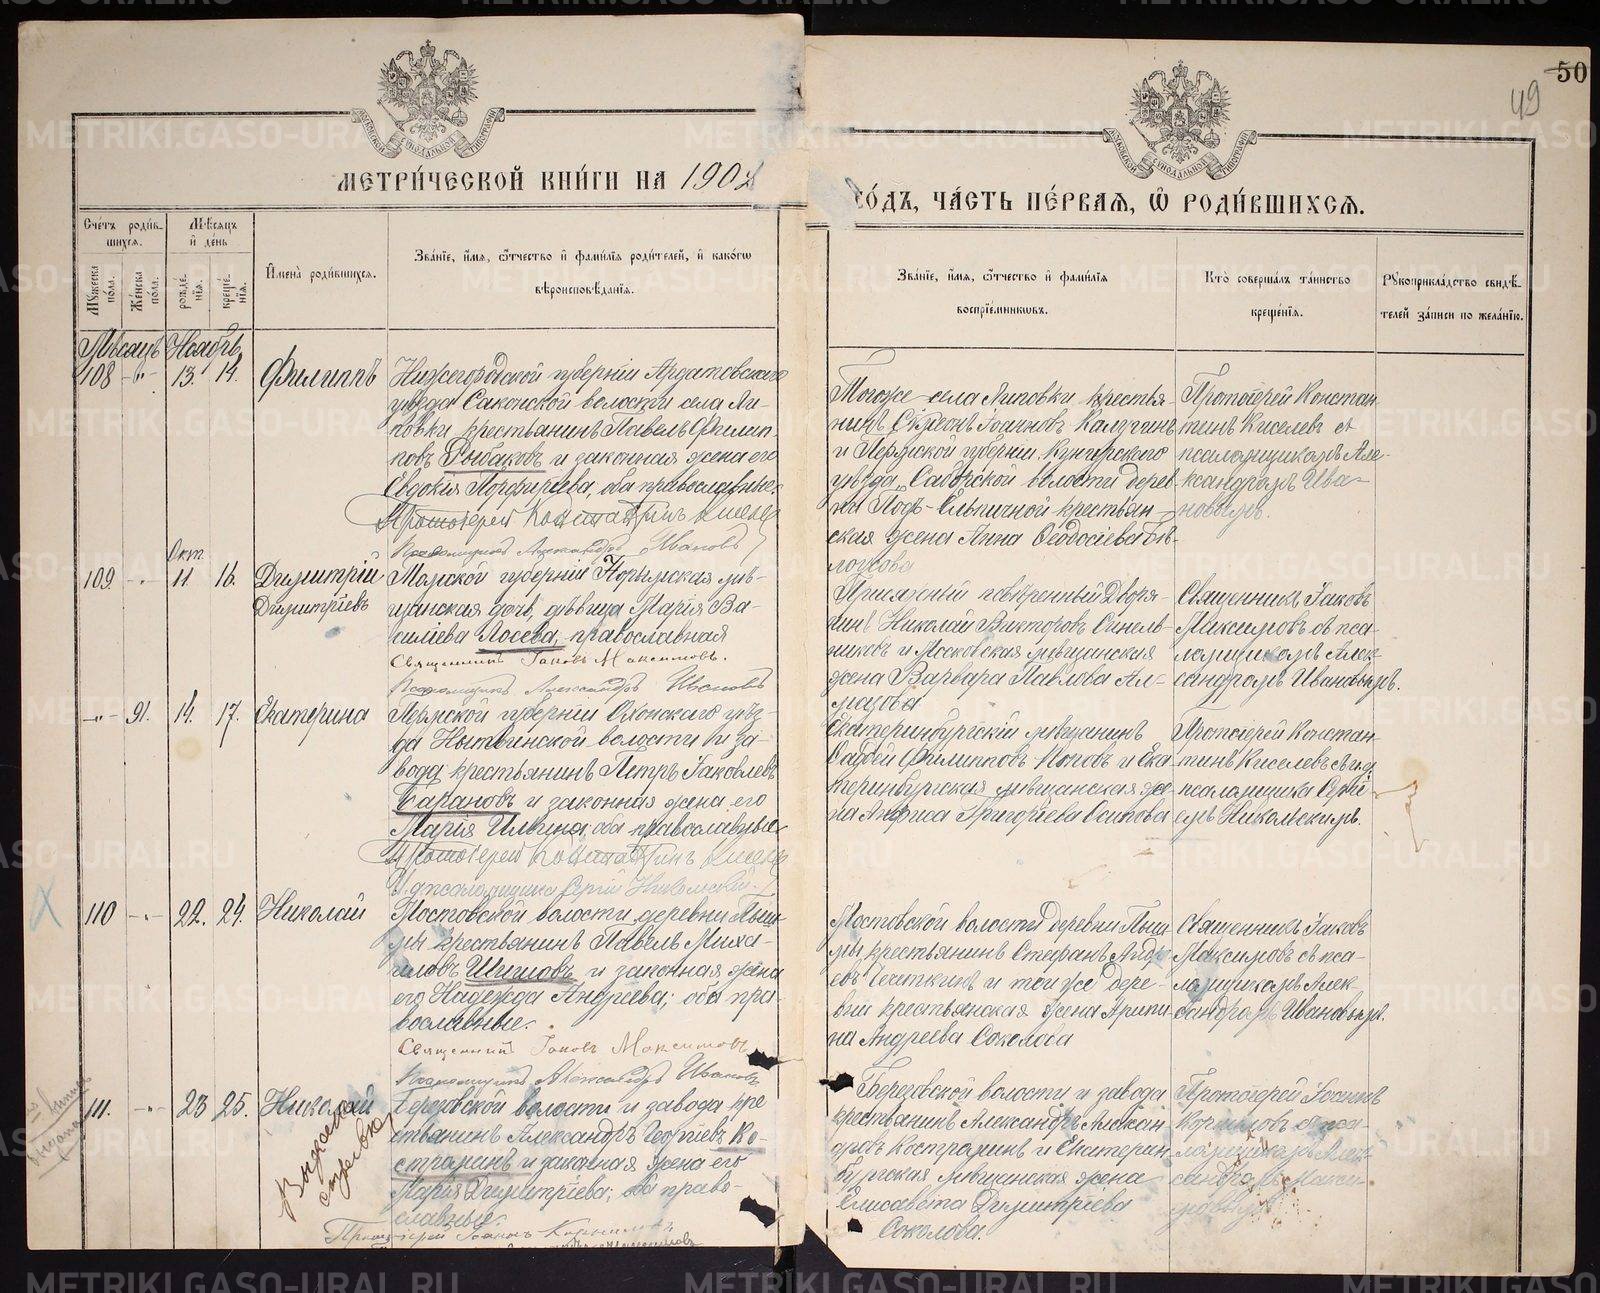 50
49
МЕТРИ́ЧЕСКОЙ КНИ́ГИ НА 1902
ГО́ДЪ, ЧА́СТЬ ПЕ́РВАЯ, Ѡ РОДИ́ВШИХСЯ.
Сче́тъ роди́в-
шихся.
Му́жеска по́ла.
Же́нска по́ла.
Мѣ́сяцъ
и҆ де́нь
рожде́-
нїя.
креще́-
нїя.
И҆мена̀ роди́вшихся.
Зва́нїе, и҆́мя, ѻ҆́тчество и҆ фами́лїя роди́телей, и҆ како́гѡ
вѣроисповѣ́данїя.
Зва́нїе, и҆́мя, ѻ҆́тчество и҆ фами́лїя
воспрїе́мниковъ.
Кто̀ соверша́лъ та́инство
креще́нїя.
Рукоприкла́дство свидѣ́-
телей за́писи по жела́нїю.
Мѣсяцъ Ноябрь
108 -"- 13. 14. Филиппъ
Нижегородской губерніи Ардатовскаго
уѣзда Саконской волости села Ли-
повка крестьянинъ Павелъ Филип-
повъ Рыбаковъ и законная жена его
Евдокія Порфирьева, оба православные.
Протоіерей Константинъ Киселевъ
Псаломщикъ Александръ Ивановъ
Тогоже села Липовки крестья-
нинъ Сѵмеонъ Іоанновъ Калугинъ
и Пермской губерніи, Кунгурскаго
уѣзда, волости дерев
ни Подъ-Ельничной крестьян-
ская жена Анна Ѳеодосіева Бѣ-
лоусова
Протоіерей Констан-
тинъ Киселевъ съ
псаломщикомъ Але-
ксандромъ Ива-
новымъ.
109 -"- Окт. 11 16. Димитрій
Димитріевъ
Томской губерніи Нарымская мѣ-
щанская дочь, дѣвица Марія Ва-
силіева Лосева, православная
Священникъ Іаковъ Максимовъ.
Псаломщикъ Александръ Ивановъ
Присяжный повѣренный Дворя-
нинъ Николай Викторовъ Синель-
никовъ и Московская мѣщанская
жена Варвара Павлова Ал-
мазова
Священникъ Іаковъ
Максимовъ съ пса-
ломщикомъ Алек-
сандромъ Ивановымъ.
-"- 91. 14. 17. Екатерина
Пермской губерніи Оханскаго уѣз-
да Нытвинской волости и за-
вода крестьянинъ Петръ Іаковлевъ
Барановъ и законная жена его
Марія Ильина, оба православные
Протоіерей Константинъ Киселевъ
И. д. псаломщика Сергій Никольскій.
Екатеринбургскій мѣщанинъ
Филипповъ Поповъ и Ека
теринбургская мѣщанская же-
на Анфиса Григорьева Осипова
Протоіерей Констан-
тинъ Киселевъ съ и.д.
псаломщика Сергі-
емъ Никольскимъ.
110 -"- 22. 24. Николай
Мостовской волости деревни Пыш-
мы крестьянинъ Павелъ Миха-
иловъ Шиловъ и законная жена
его Надежда Андреева; оба пра-
вославные.
Священникъ Іаковъ Максимовъ
Псаломщикъ Александръ Ивановъ
Мостовской волости деревни Пыш
мы крестьянинъ Стефанъ Андре
евъ и той же дере-
вни крестьянская жена Ирини
на Андреева Соколова
Священникъ Іаковъ
Максимовъ съ пса-
ломщикомъ Алек
сандромъ Ивановымъ.
111. -"- 23 25. Николай
Березовской волости и завода кре
стьянинъ Александръ Георгіевъ Ко-
стромин и законная жена его
Марія Димитріева; оба право-
славные.
Протоіерей Іоаннъ Корниловъ
Березовской волости и завода
крестьянинъ Александръ Алексан
дровъ Костроминъ и Екатерин
бургская мѣщанская жена
Елисавета Димитріева
Соколова.
Протоіерей Іоаннъ
Корниловъ съ пса-
ломщикомъ Алек-
сандромъ